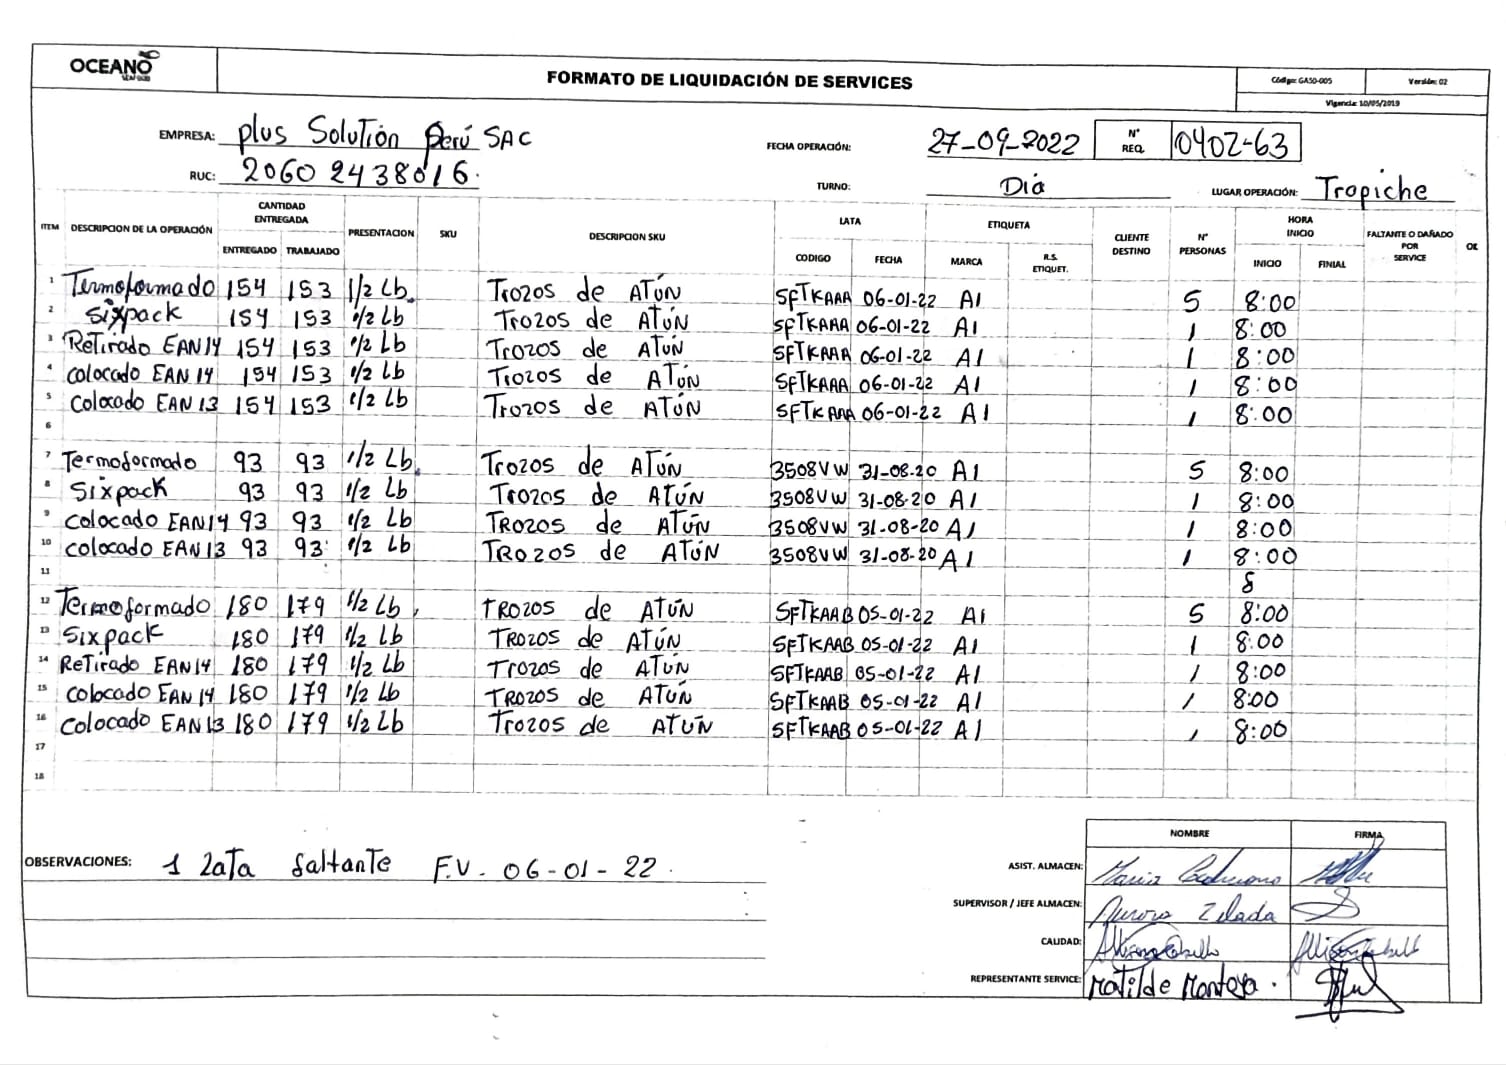 OCEANO
FORMATO DE LIQUIDACIÓN DE SERVICES
Código: GASO-005
Versión: 02
Vigencia: 10/05/2019
EMPRESA: plus Solution Perú SAC
FECHA OPERACIÓN: 27-09-2022
N° REQ. 0402-63
RUC: 20602438016.
TURNO: Día
LUGAR OPERACIÓN: Tropiche
ITEM DESCRIPCION DE LA OPERACIÓN CANTIDAD ENTREGADA PRESENTACION SKU DESCRIPCION SKU LATA ETIQUETA CLIENTE DESTINO N° PERSONAS HORA INICIO FALTANTE O DAÑADO POR SERVICE OK
ENTREGADO TRABAJADO CODIGO FECHA MARCA R.S. ETIQUET. INICIO FINIAL
1 Termoformado 154 153 1/2 Lb. Trozos de ATÚN SFTKAAA 06-01-22 A1 5 8:00
2 Sixpack 154 153 1/2 Lb Trozos de ATÚN SFTKAAA 06-01-22 A1 1 8:00
3 Retirado EAN14 154 153 1/2 Lb Trozos de ATÚN SFTKAAA 06-01-22 A1 1 8:00
4 colocado EAN 14 154 153 1/2 Lb Trozos de ATÚN SFTKAAA 06-01-22 A1 1 8:00
5 colocado EAN 13 154 153 1/2 Lb Trozos de ATÚN SFTKAAA 06-01-22 A1 1 8:00
6
7 Termoformado 93 93 1/2 Lb. Trozos de ATÚN 3508VW 31-08-20 A1 5 8:00
8 Sixpack 93 93 1/2 Lb Trozos de ATÚN 3508VW 31-08-20 A1 1 8:00
9 colocado EAN14 93 93 1/2 Lb TROZOS de ATÚN 3508VW 31-08-20 A1 1 8:00
10 colocado EAN13 93 93 1/2 Lb TROZOS de ATÚN 3508VW 31-08-20 A1 1 8:00
11 8
12 Termoformado 180 179 1/2 Lb, TROZOS de ATÚN SFTKAAB 05-01-22 A1 5 8:00
13 Sixpack 180 179 1/2 Lb TROZOS de ATÚN SFTKAAB 05-01-22 A1 1 8:00
14 Retirado EAN14 180 179 1/2 Lb Trozos de ATÚN SFTKAAB 05-01-22 A1 1 8:00
15 colocado EAN 14 180 179 1/2 Lb TROZOS de ATÚN SFTKAAB 05-01-22 A1 1 8:00
16 colocado EAN13 180 179 1/2 Lb Trozos de ATÚN SFTKAAB 05-01-22 A1 1 8:00
17
18
OBSERVACIONES: 1 Lata faltante F.V. 06-01-22.
NOMBRE FIRMA
ASIST. ALMACEN: Maria
SUPERVISOR / JEFE ALMACEN: Aurora Zelada
CALIDAD:
REPRESENTANTE SERVICE: Matilde Montoya.